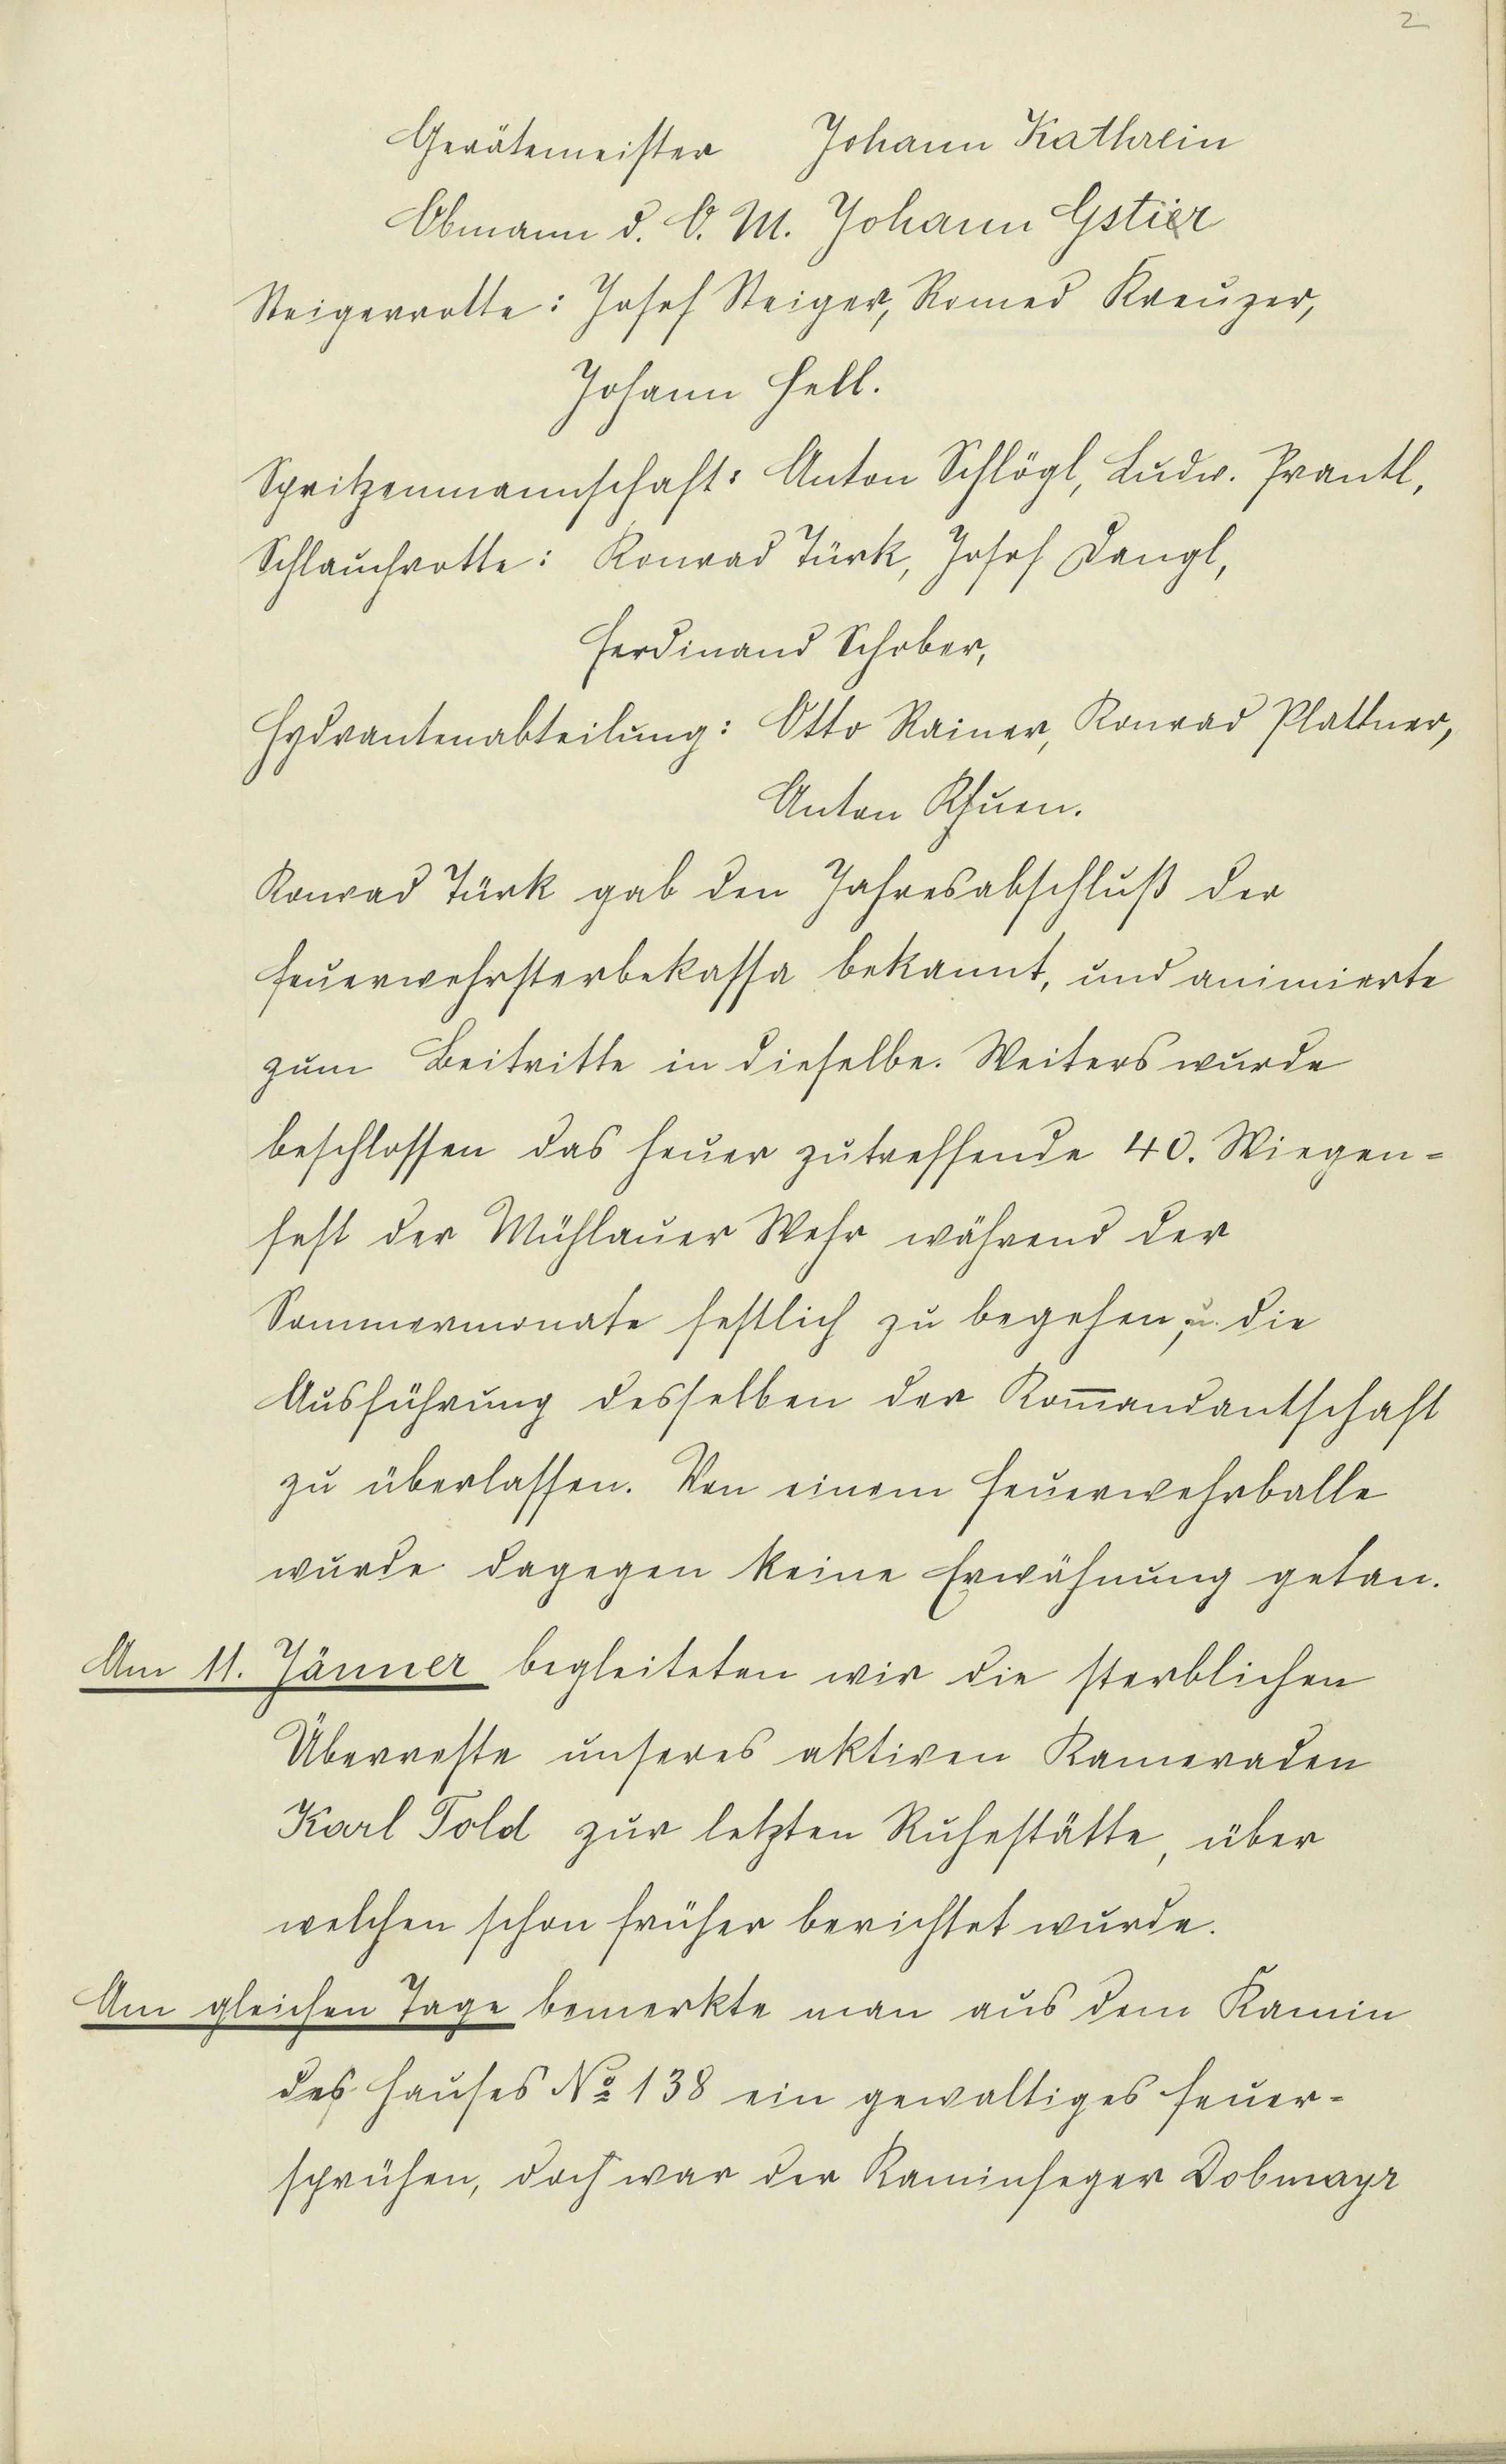 2
Gerätemeister Johann Kathrein
Obmann d. O. M. Johann Gstier
Steigerrotte: Josef Steiger, Romed Kreuzer,
Johann Hell.
Spritzenmannschaft: Anton Schlögl, Ludw. Prantl,
Schlauchrotte: Konrad Türk, Josef Dangl,
Ferdinand Schober,
Hydrantenabteilung: Otto Rainer, Konrad Plattner,
Anton Khuen.
Konrad Türk gab den Jahresabschluß der
Feuerwehrsterbekassa bekannt, und animierte
zum Beitritte in dieselbe. Weiters wurde
beschlossen das heuer zutreffende 40. Wiegen-
fest der Mühlauer Wehr während der
Sommermonate festlich zu begehen, u. die
Ausführung desselben der Kom̅andantschaft
zu überlassen. Von einem Feuerwehrballe
wurde dagegen keine Erwähnung getan.
Am 11. Jänner begleiteten wir die sterblichen
Überreste unseres aktiven Kameraden
Karl Told zur letzten Ruhestätte, über
welchen schon früher berichtet wurde.
Am gleichen Tage bemerkte man aus dem Kamin
des Hauses № 138 ein gewaltiges Feuer-
sprühen, doch war der Kaminfeger Dobmayr